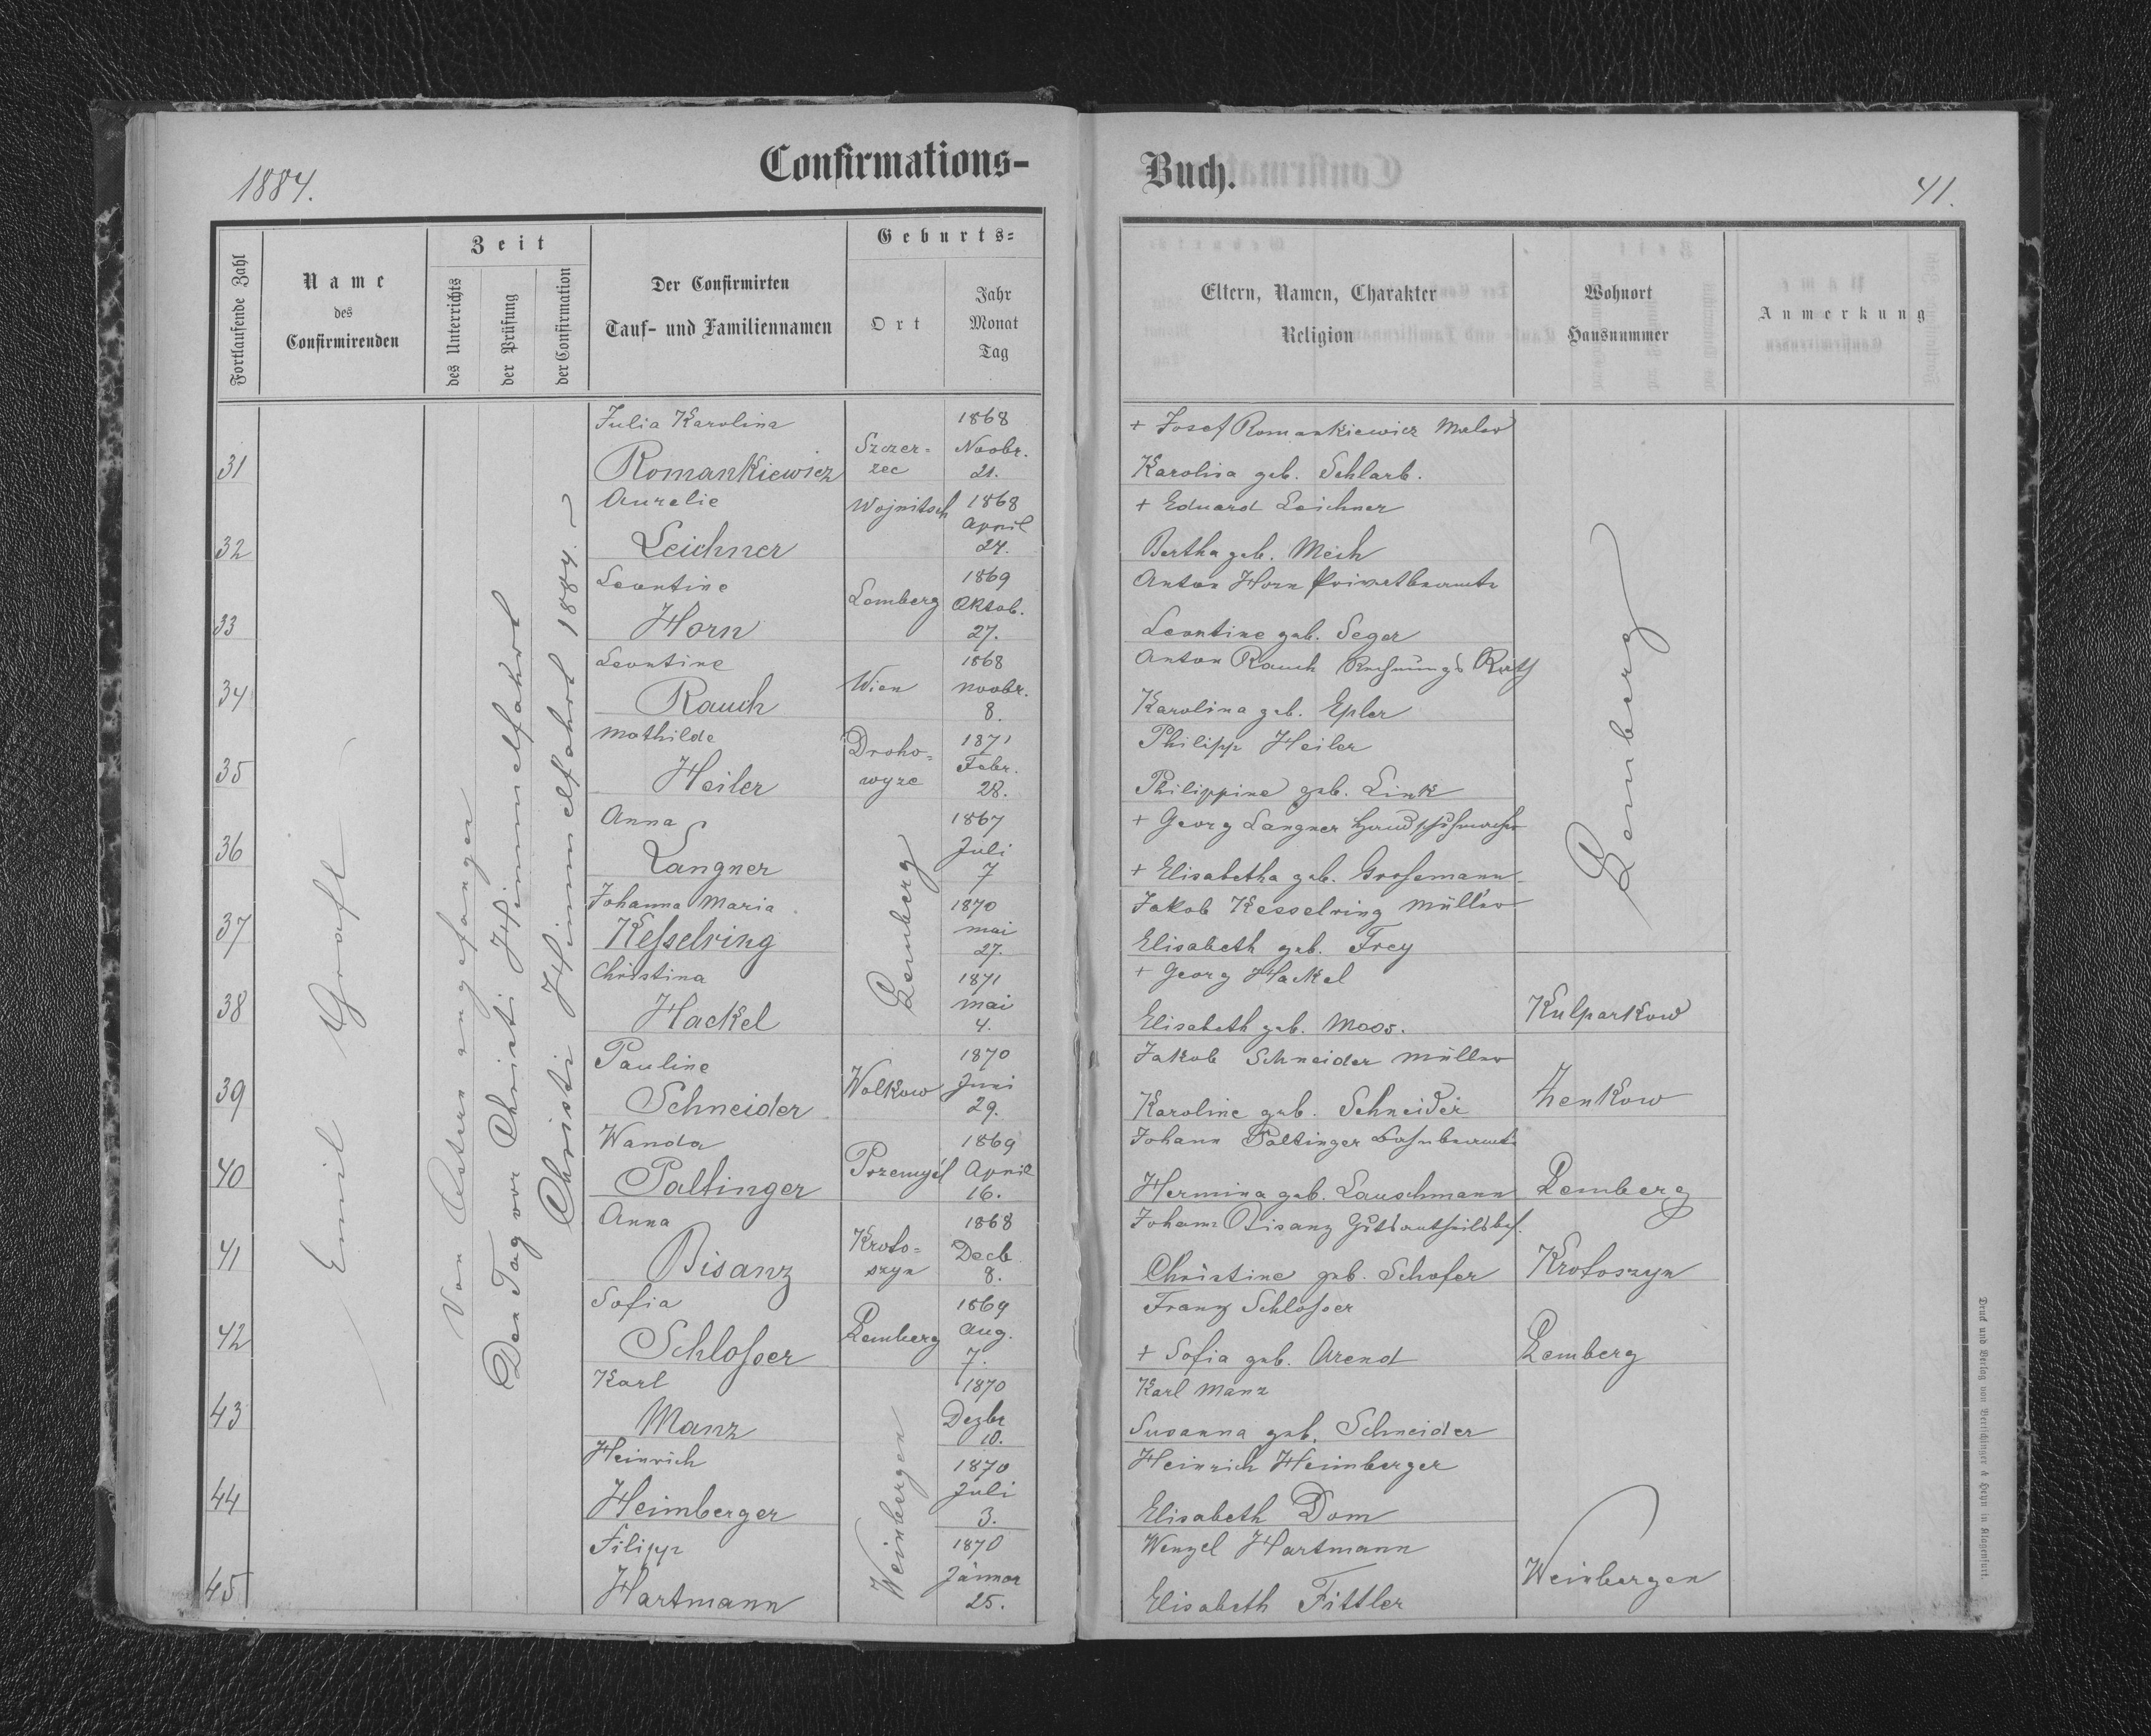 1884.
Confirmations-
Buch.
41.
Fortlaufende Zahl
Name
des
Confirmirenden
Zeit
des Unterrichts
der Prüfung
der Confirmation
Der Confirmirten
Tauf- und Familiennamen
Geburts=
Ort
Jahr
Monat
Tag
Eltern, Namen, Charakter
Religion
Wohnort
Hausnummer
Anmerkung
Emil Graft
Von Ostern angefangen
Den Tag vor Christi Himmelfahrt
Christi Himmelfahrt 1884.
31
Julia Karolina
Romankiewicz
Szczer=
zec
1868
Novbr.
21.
+ Josef Romankiewicz Maler
Karolina geb. Schlarb.
32
Aurelie
Leichner
Wojnitsch
1868
April
24.
+ Eduard Leichner
Bertha geb. Mech
33
Leontine
Horn
Lemberg
1869
Oktob.
27.
Anton Horn Privatbeamte
Leontine geb. Seger
34
Leontine
Rauch
Wien
1868
Novbr.
8.
Anton Rauch Rechnungs Rath
Karolina geb. Epler
35
Mathilde
Heiler
Droho=
wyze
1871
Febr.
28.
Philipp Heiler
Philippine geb. Link
36
Anna
Langner
Lemberg
1867
Juli
7
+ Georg Langner Handschuhmacher
+ Elisabetha geb. Grossmann
37
Johanna Maria
Kesselring
1870
Mai
27.
Jakob Kesselring Müller
Elisabeth geb. Frey
Lemberg
38
Christina
Hackel
1871
Mai
4.
+ Georg Hackel
Elisabeth geb. Moos.
Kulparkow
39
Pauline
Schneider
Wolkow
1870
Juni
29.
Jakob Schneider Müller
Karoline geb. Schneider
Zenkow
40
Wanda
Paltinger
Przemyśl
1869
April
16.
Johann Paltinger Bahnbeamte
Hermina geb. Lauschmann
Lemberg
41
Anna
Bisanz
Kroto=
szyn
1868
Decb
8.
Johann Bisanz Gutsantheilsbes.
Christine geb. Schofer
Krotoszyn
42
Sofia
Schlosser
Lemberg
1869
Aug.
7.
Franz Schlosser
+ Sofia geb. Arend
Lemberg
43
Karl
Manz
Weinbergen
1870
Dezbr
10.
Karl Manz
Susanna geb. Schneider
44
Heinrich
Heimberger
1870
Juli
3.
Heinrich Heimberger
Elisabeth Dom
45
Filipp
Hartmann
1870
Jänner
25.
Wenzel Hartmann
Elisabeth Fittler
Weinbergen
Druck und Verlag von Bertschinger & Heyn in Klagenfurt.